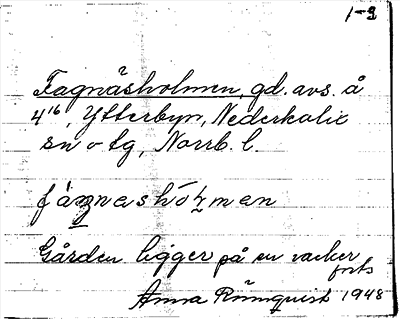 1-3
Fagnäsholmen, gd. avs. å
4¹⁶, Ytterbyn, Nederkalix
sn o tg, Norrb. l.
fáŋnashólmen
Gården ligger på en vacker
forts
Anna Rönnquist 1948